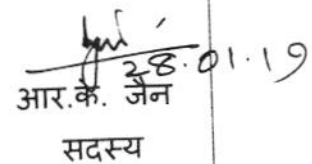 28.01.19
आर.के. जैन
सदस्य